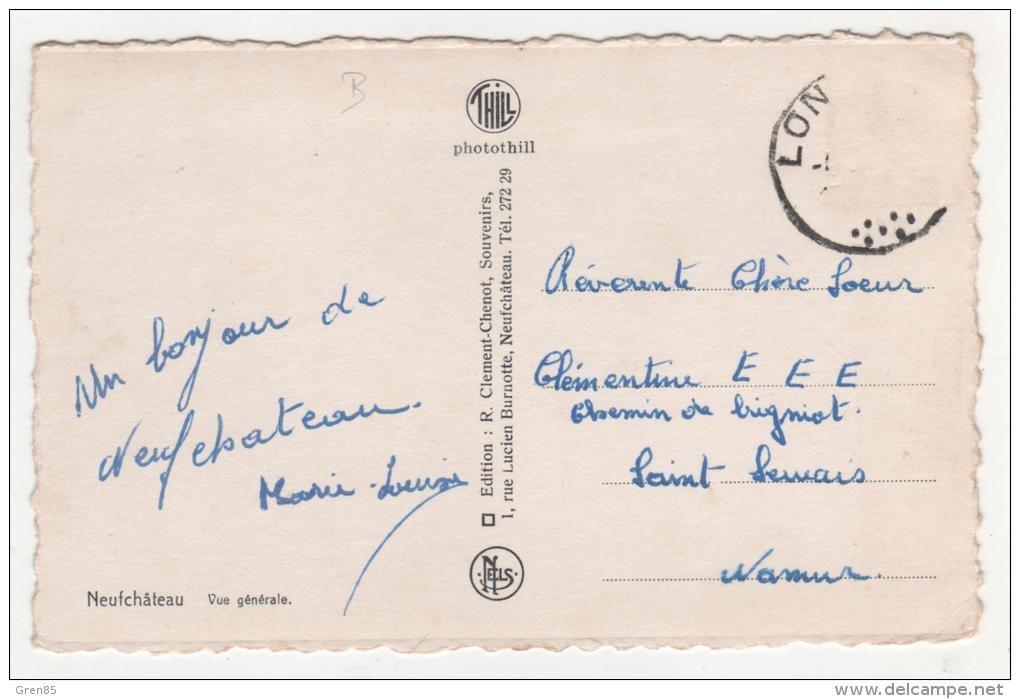 B
THILL
photothill
LON
Un bonjour de
Neufchateau.
Marie-Louise
Edition : R. Clement-Chenot, Souvenirs,
1, rue Lucien Burnotte, Neufchâteau. Tél. 272 29
Réverente Chère Soeur
Clémentine E E E
Chemin de
Saint Servais
Namur.
NELS
Neufchâteau Vue générale.
Gren85
www.delcampe.net